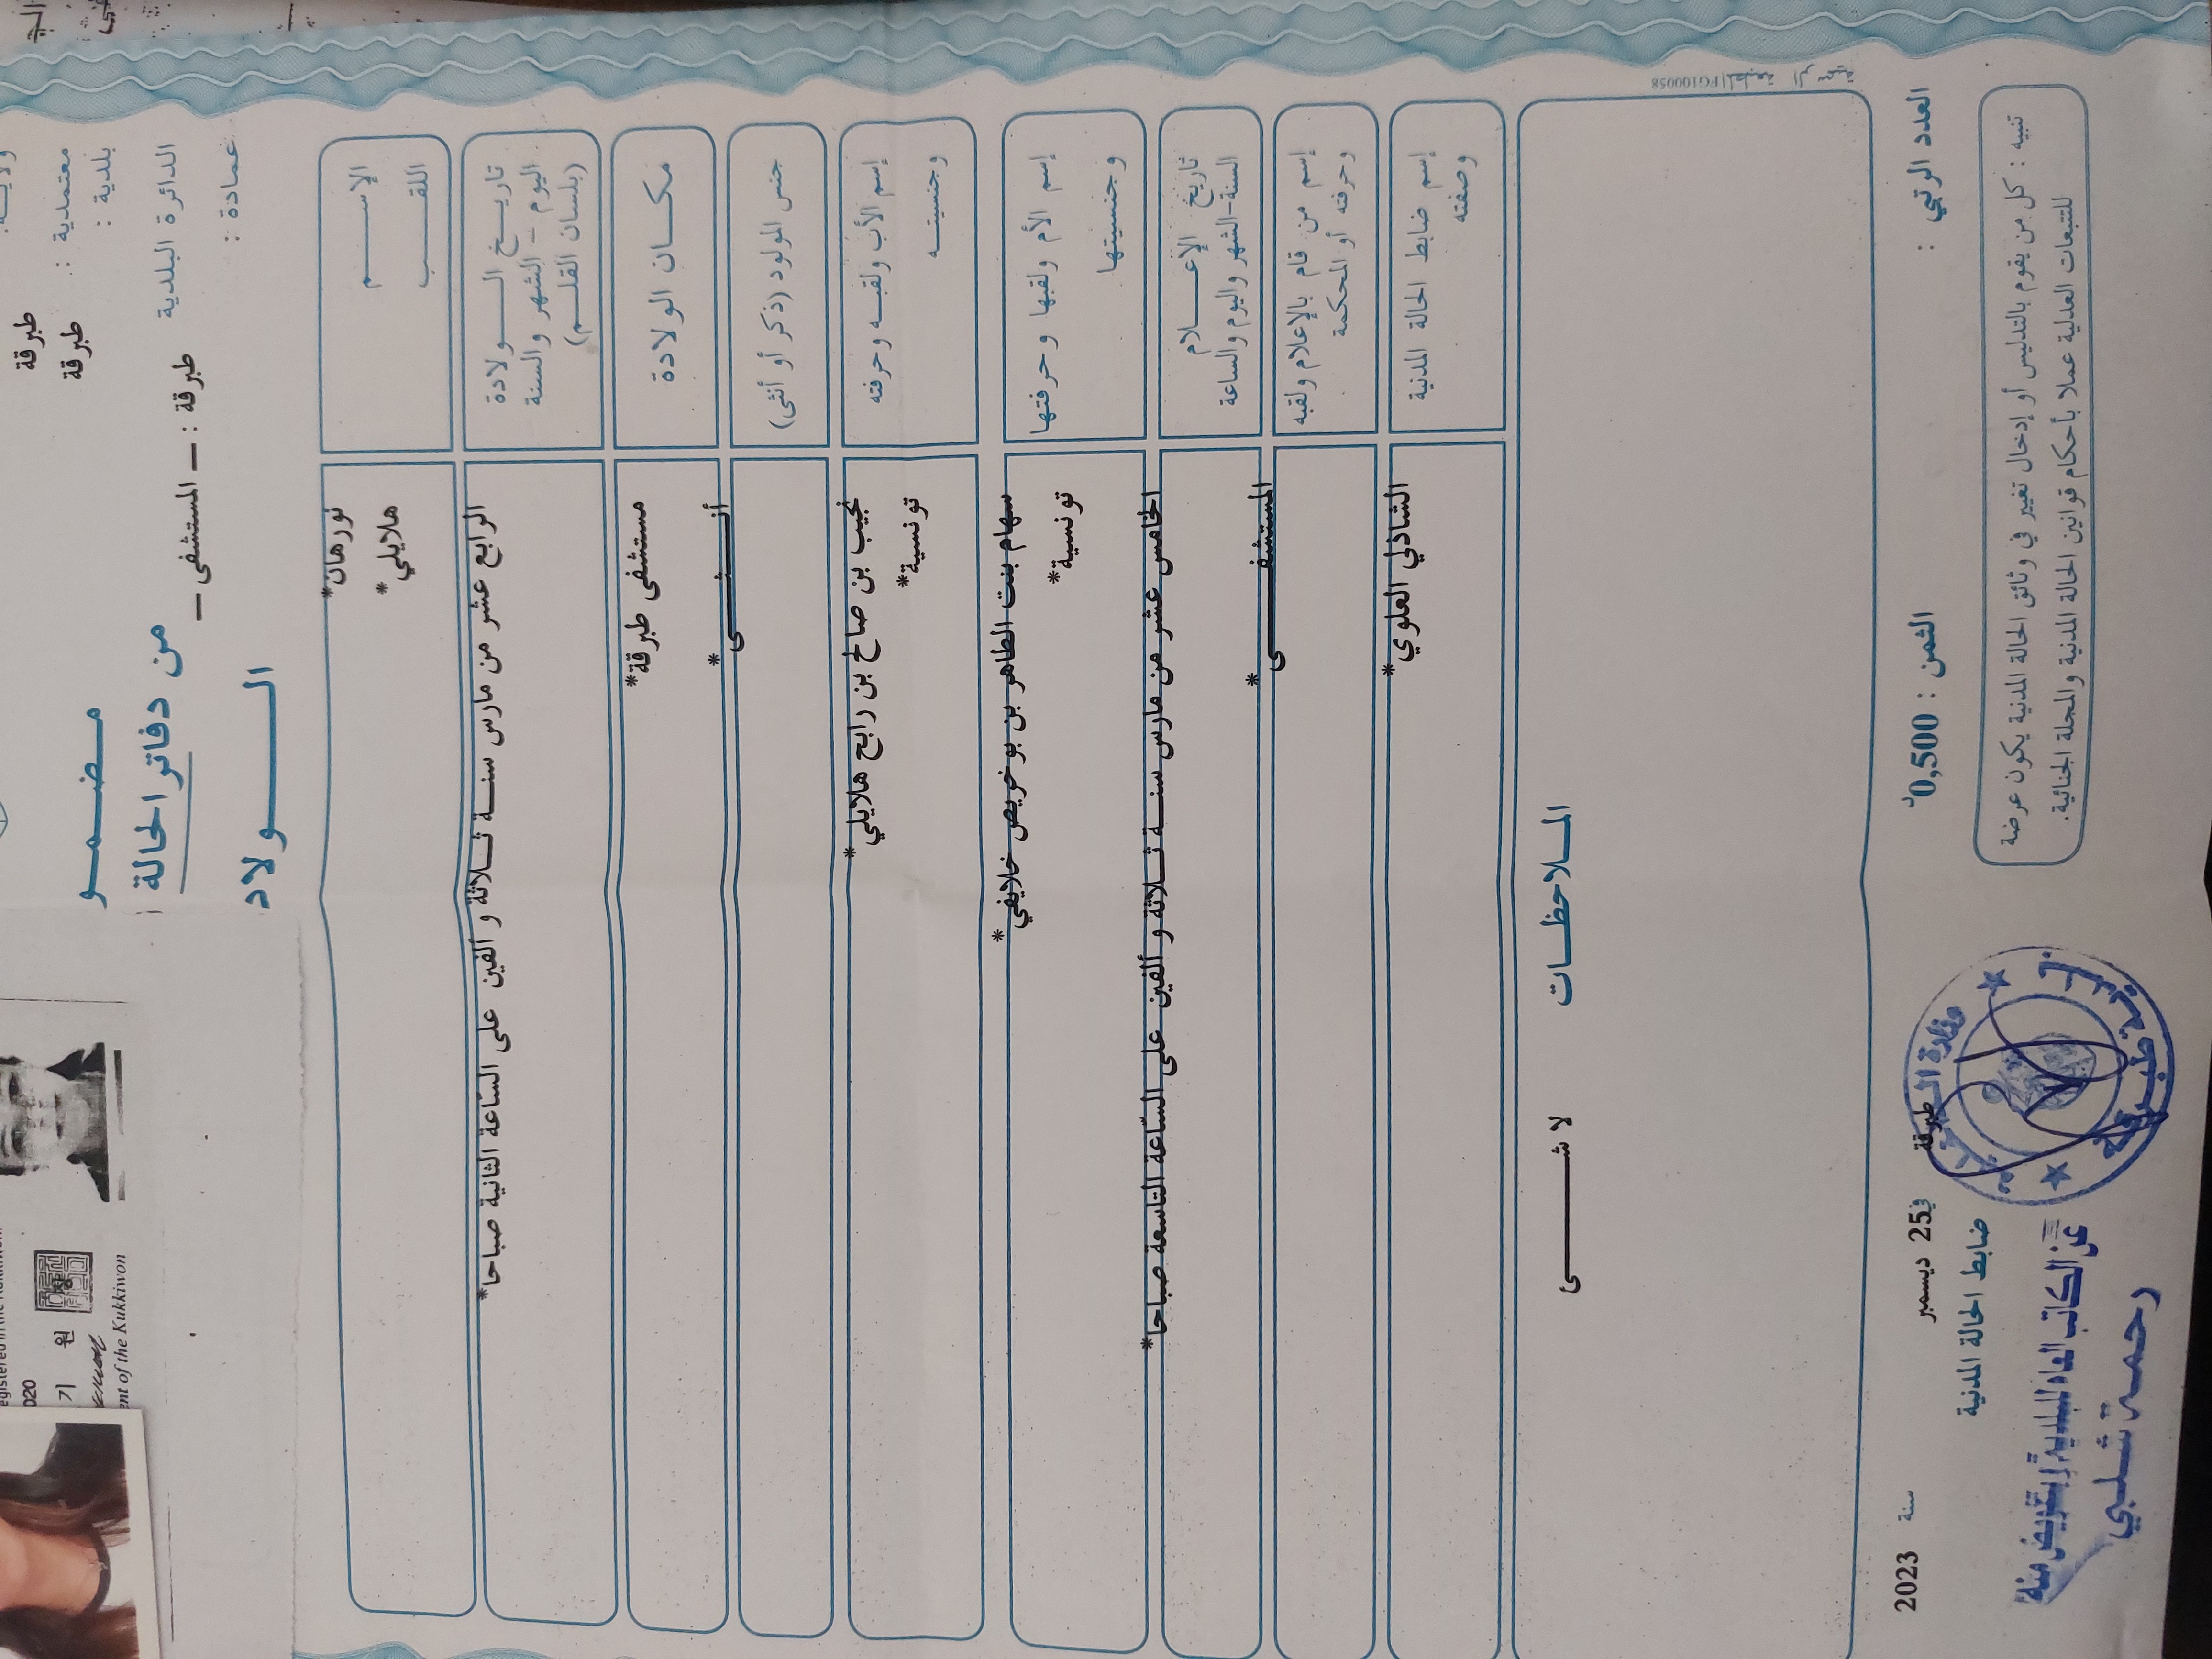 معتمدية : طبرقة
بلدية : طبرقة
الدائرة البلدية طبرقة : – المستشفى –
عمادة :
من دفاتر الحالة
الإســـم
اللقـــب
نورهان*
هلايلي*
تاريـخ الــولادة
اليوم – الشهر والسنة
(بلسان القلـم)
الرابع عشر من مارس سنـــة ثــلاثة و ألفين على الساعة الثانية صباحا*
مكــان الولادة
مستشفى طبرقة*
جنس المولود (ذكر أو أنثى)
أنـــثـــى*
إسم الأب ولقبـه وحرفته
وجنسيتــه
نجيب بن صالح بن رابح هلايلي*
تونسية*
إسم الأم ولقبها وحرفتها
وجنسيتها
سهام بنت الطاهر بن بوخريص خلايفي*
تونسية*
تاريخ الإعـــلام
السنة-الشهر واليوم والساعة
الخامس عشر من مارس سنـــة ثــلاثة و ألفين على الساعة التاسعة صباحا*
إسم من قام بالإعلام ولقبه
وحرفته أو المحكمة
المستشفـــى*
إسم ضابط الحالة المدنية
وصفته
الشاذلي العلوي*
المــلاحظــات
لا شـــى
FG100058
العدد الرتبي :
الثمن : 0,500د
طبرقة في 25 ديسمبر سنة 2023
ضابط الحالة المدنية
تنبيه : كل من يقوم بالتدليس أو إدخال تغيير في وثائق الحالة المدنية يكون عرضة
للتتبعات العدلية عملا بأحكام قوانين الحالة المدنية والمجلة الجنائية.
عن الكاتب العام للبلدية وبتفويض منه
رحمة شلبي
2020
ent of the Kukkiwon